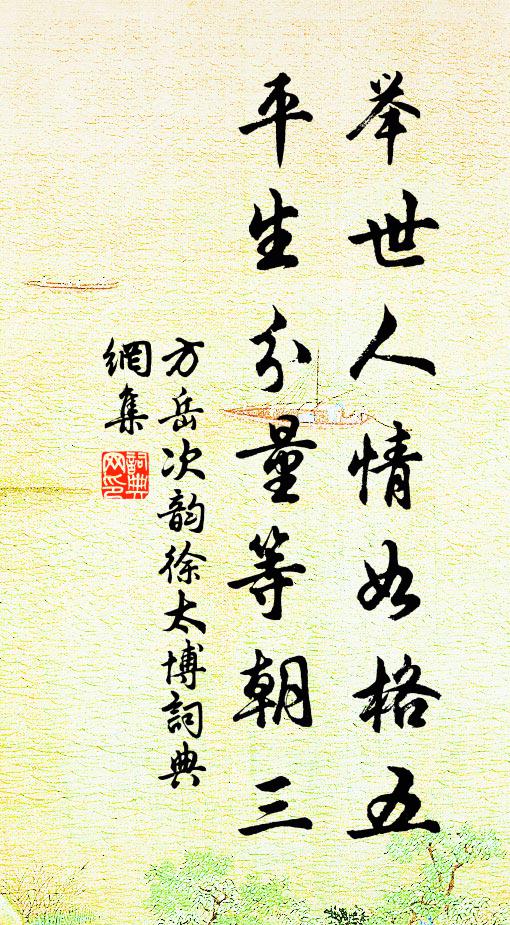 举世人情如格五
平生分量等朝三
方岳次韵徐太博詞典
網集
詞典
网印